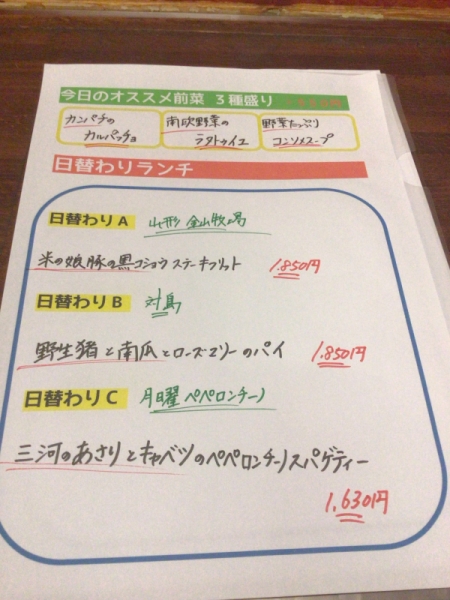 今日のオススメ前菜 3種盛り
カンパチの
カルパッチョ
南欧野菜の
ラタトゥイユ
野菜たっぷり
コンソメスープ
日替わりランチ
日替わりA 山形 金山牧場
米の娘豚の黒コショウステーキフリット 1.850円
日替わりB 対馬
野生猪と南瓜とローズマリーのパイ 1.850円
日替わりC 月曜ペペロンチーノ
三河のあさりとキャベツのペペロンチーノスパゲティー
1.630円